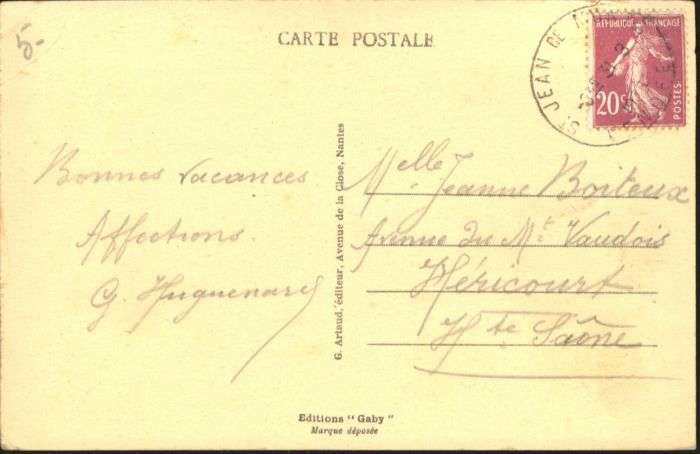 5-
CARTE POSTALE
ST JEAN DE
REPUBLIQUE FRANÇAISE
20c
POSTES
Bonnes vacances
Affections
G. Huguenard
G. Artaud, éditeur, Avenue de la Close, Nantes
Melle Jeanne Boiteux
Avenue du Mt Vaudois
Héricourt
Hte Saône
Editions "Gaby"
Marque déposée